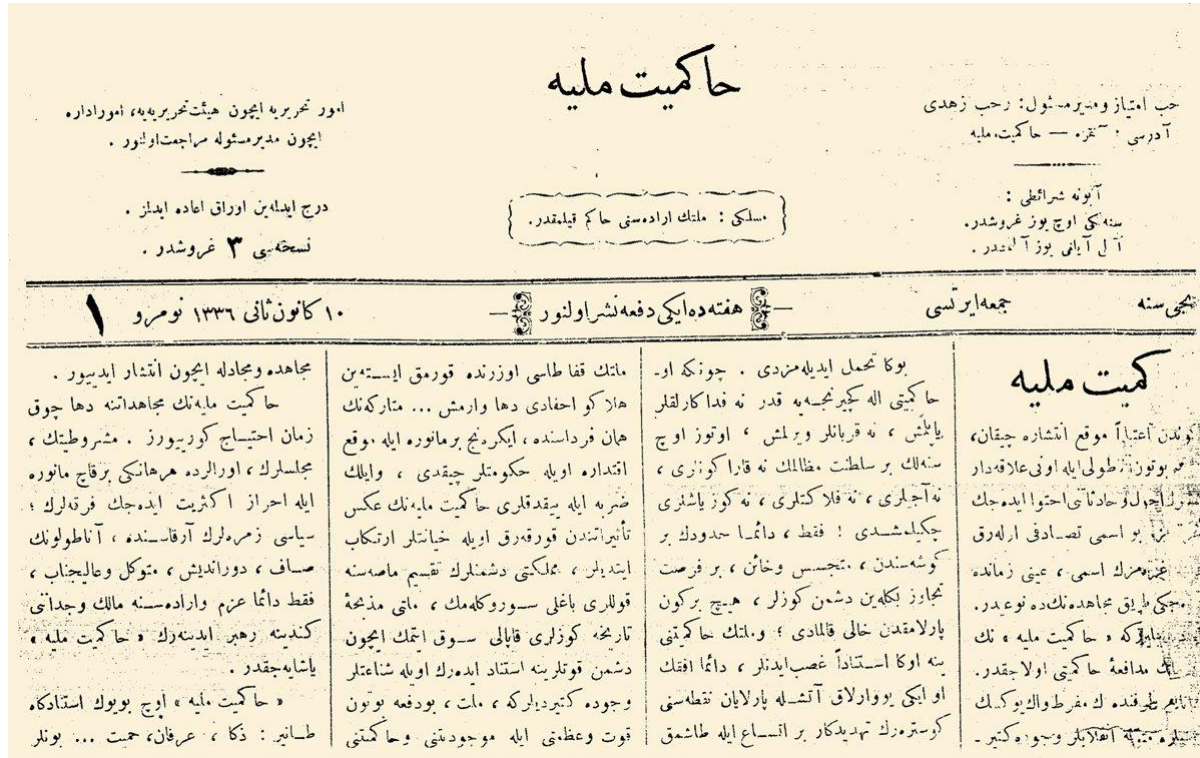 حاكميت مليه
امتياز ومدير مسئول : رجب زهدى
آدرسى : آنقره — حاكميت مليه
آبونه شرائطى :
سنه‌لكى اوچ يوز غروشدر.
آلتى آيلغى يوز آلتمشدر.
مسلكى : ملتك اراده‌سنى حاكم قيلمقدر.
امور تحريريه ايچون هيئت تحريريه‌يه، اموراداره
ايچون مدير مسئوله مراجعت اولنور .
درج ايدلمه‌ين اوراق اعاده ايدلمز .
نسخه‌سى ٣ غروشدر .
سنه
جمعه ايرتسى
— هفته‌ده ايكى دفعه نشر اولنور —
١٠ كانون ثانى ١٣٣٦ نومرو ١
كميت مليه
اعتباراً موقع انتشاره چيقان،
بوتون طولى ايله اونى علاقه‌دار
حادثاتى احتوا ايده‌جك
بو اسمى تصادفى اوله‌رق
غزته‌مزك اسمى ، عينى زمانده
طريق مجاهده‌نك ده نوعيدر.
كه « حاكميت مليه » نك
مدافعهٔ حاكميتى اولاجقدر.
طرفنده ك مفرط واك يوكسك
انقلابلر وجوده كتير-
بوكا تحمل ايديله‌مزدى . چونكه او-
حاكميتى اله كچيرنجه‌يه قدر نه فداكارلقلر
ياپلمش ، نه قربانلر ويرلمش ، اوتوز اوچ
سنه‌لك بر سلطنت مظالمك نه قارا كونلرى ،
نه آجيلرى ، نه فلاكتلرى ، نه كوز ياشلرى
چكيلمشدى ! فقط ، دائما حدودك بر
كوشه‌سندن ، متجسس وخائن ، بر فرصت
تجاوز بكله‌ين دشمن كوزلر ، هيچ بركون
پارلامقدن خالى قالمادى ؛ وملتك حاكميتنى
ينه اوكا استناداً غصب ايدنلر ، دائما افقك
او ايكى يووارلاق آتشله پارلايان نقطه‌سنى
كوستره‌رك تهديدكار بر اتساع ايله طاشمق
ملتك قفا طاسى اوزرنده قورمق ايسته‌ين
هلاكو احفادى دها وارمش ... متاركه‌نك
همان فرداسنده ، ايكرنج بر مانوره ايله موقع
اقتداره اويله حكومتلر چيقدى ، وايلك
ضربه ايله ييقدقلرى حاكميت مليه‌نك عكس
تأثيراتندن قورقه‌رق اويله خيانتلر ارتكاب
ايتديلر ، مملكتى دشمنلرك تقسيم ماصه‌سنه
قوللرى باغلى سوروكله‌مك ، ملتى مذبحهٔ
تاريخه كوزلرى قاپالى سوق ايتمك ايچون
دشمن قوتلرينه استناد ايده‌رك اويله شناعتلر
وجوده كتيرديلركه ، ملت ، بودفعه بوتون
قوت وعظمتى ايله موجوديتنى وحاكميتنى
مجاهده ومجادله ايچون انتشار ايدييور .
حاكميت مليه‌نك مجاهداتنه دها چوق
زمان احتياج كورييورز . مشروطيتك ،
مجلسلرك ، اورالرده هرهانكى برقاچ مانوره
ايله احراز اكثريت ايده‌جك فرقه‌لرك ؛
سياسى زمره‌لرك آرقاسنده ، آناطولونك
صاف ، دورانديش ، متوكل وعاليجناب ،
فقط دائما عزم واراده‌سنه مالك وجدانى
كندينه رهبر ايدينه‌رك « حاكميت مليه »
ياشايه‌جقدر .
« حاكميت مليه » اوچ بويوك استنادكاه
طانير : ذكا ، عرفان، حميت ... بونلر